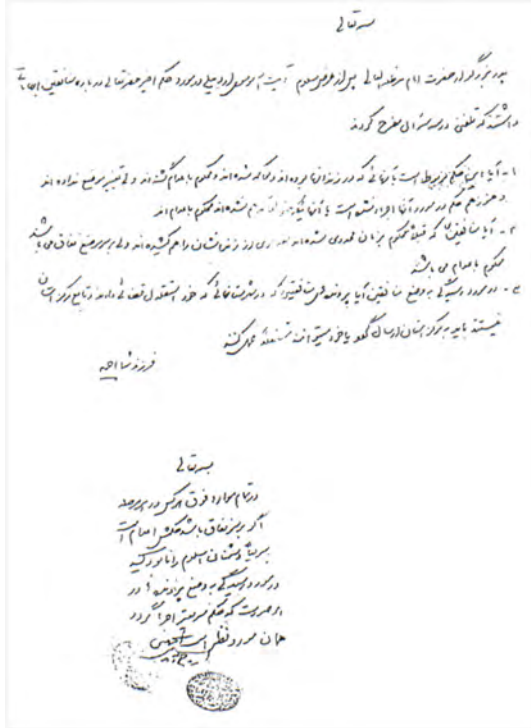 بسمه تعالی
پدر بزرگوار حضرت امام مدظله العالی پس از عرض سلام آیت الله موسوی اردبیلی در مورد حکم اخیر حضرتعالی درباره منافقین ابهاماتی
داشته‌اند که تلفنی در سه سئوال مطرح کردند
۱- آیا این حکم مربوط است به آنهائی که در زندانها بوده‌اند و محاکمه شده‌اند و محکوم به اعدام گشته‌اند ولی تغییر موضع نداده‌اند
و هنوز هم حکم در مورد آنها اجرا نشده است یا آنهائیکه حتی محاکمه هم نشده‌اند محکوم به اعدامند
۲- آیا منافقین که قبلاً محکوم به زندان محدود شده‌اند و مقداری از زندانشان را هم کشیده‌اند ولی بر سر موضع نفاق می‌باشند
محکوم به اعدام می‌باشند
۳- در مورد رسیدگی به وضع منافقین آیا پرونده‌های منافقینی که در شهرستانهائی که خود استقلال قضائی دارند و تابع مرکز استان
نیستند باید به مرکز استان ارسال گردد یا خود میتوانند مستقلاً عمل کنند
فرزند شما احمد
بسمه تعالی
در تمام موارد فوق هر کس در هر مرحله
اگر بر سر نفاق باشد حکمش اعدام است
سریعاً دشمنان اسلام را نابود کنید
در مورد رسیدگی به وضع پرونده‌ها در
هر صورت که حکم سریعتر اجرا گردد
همان مورد نظر است